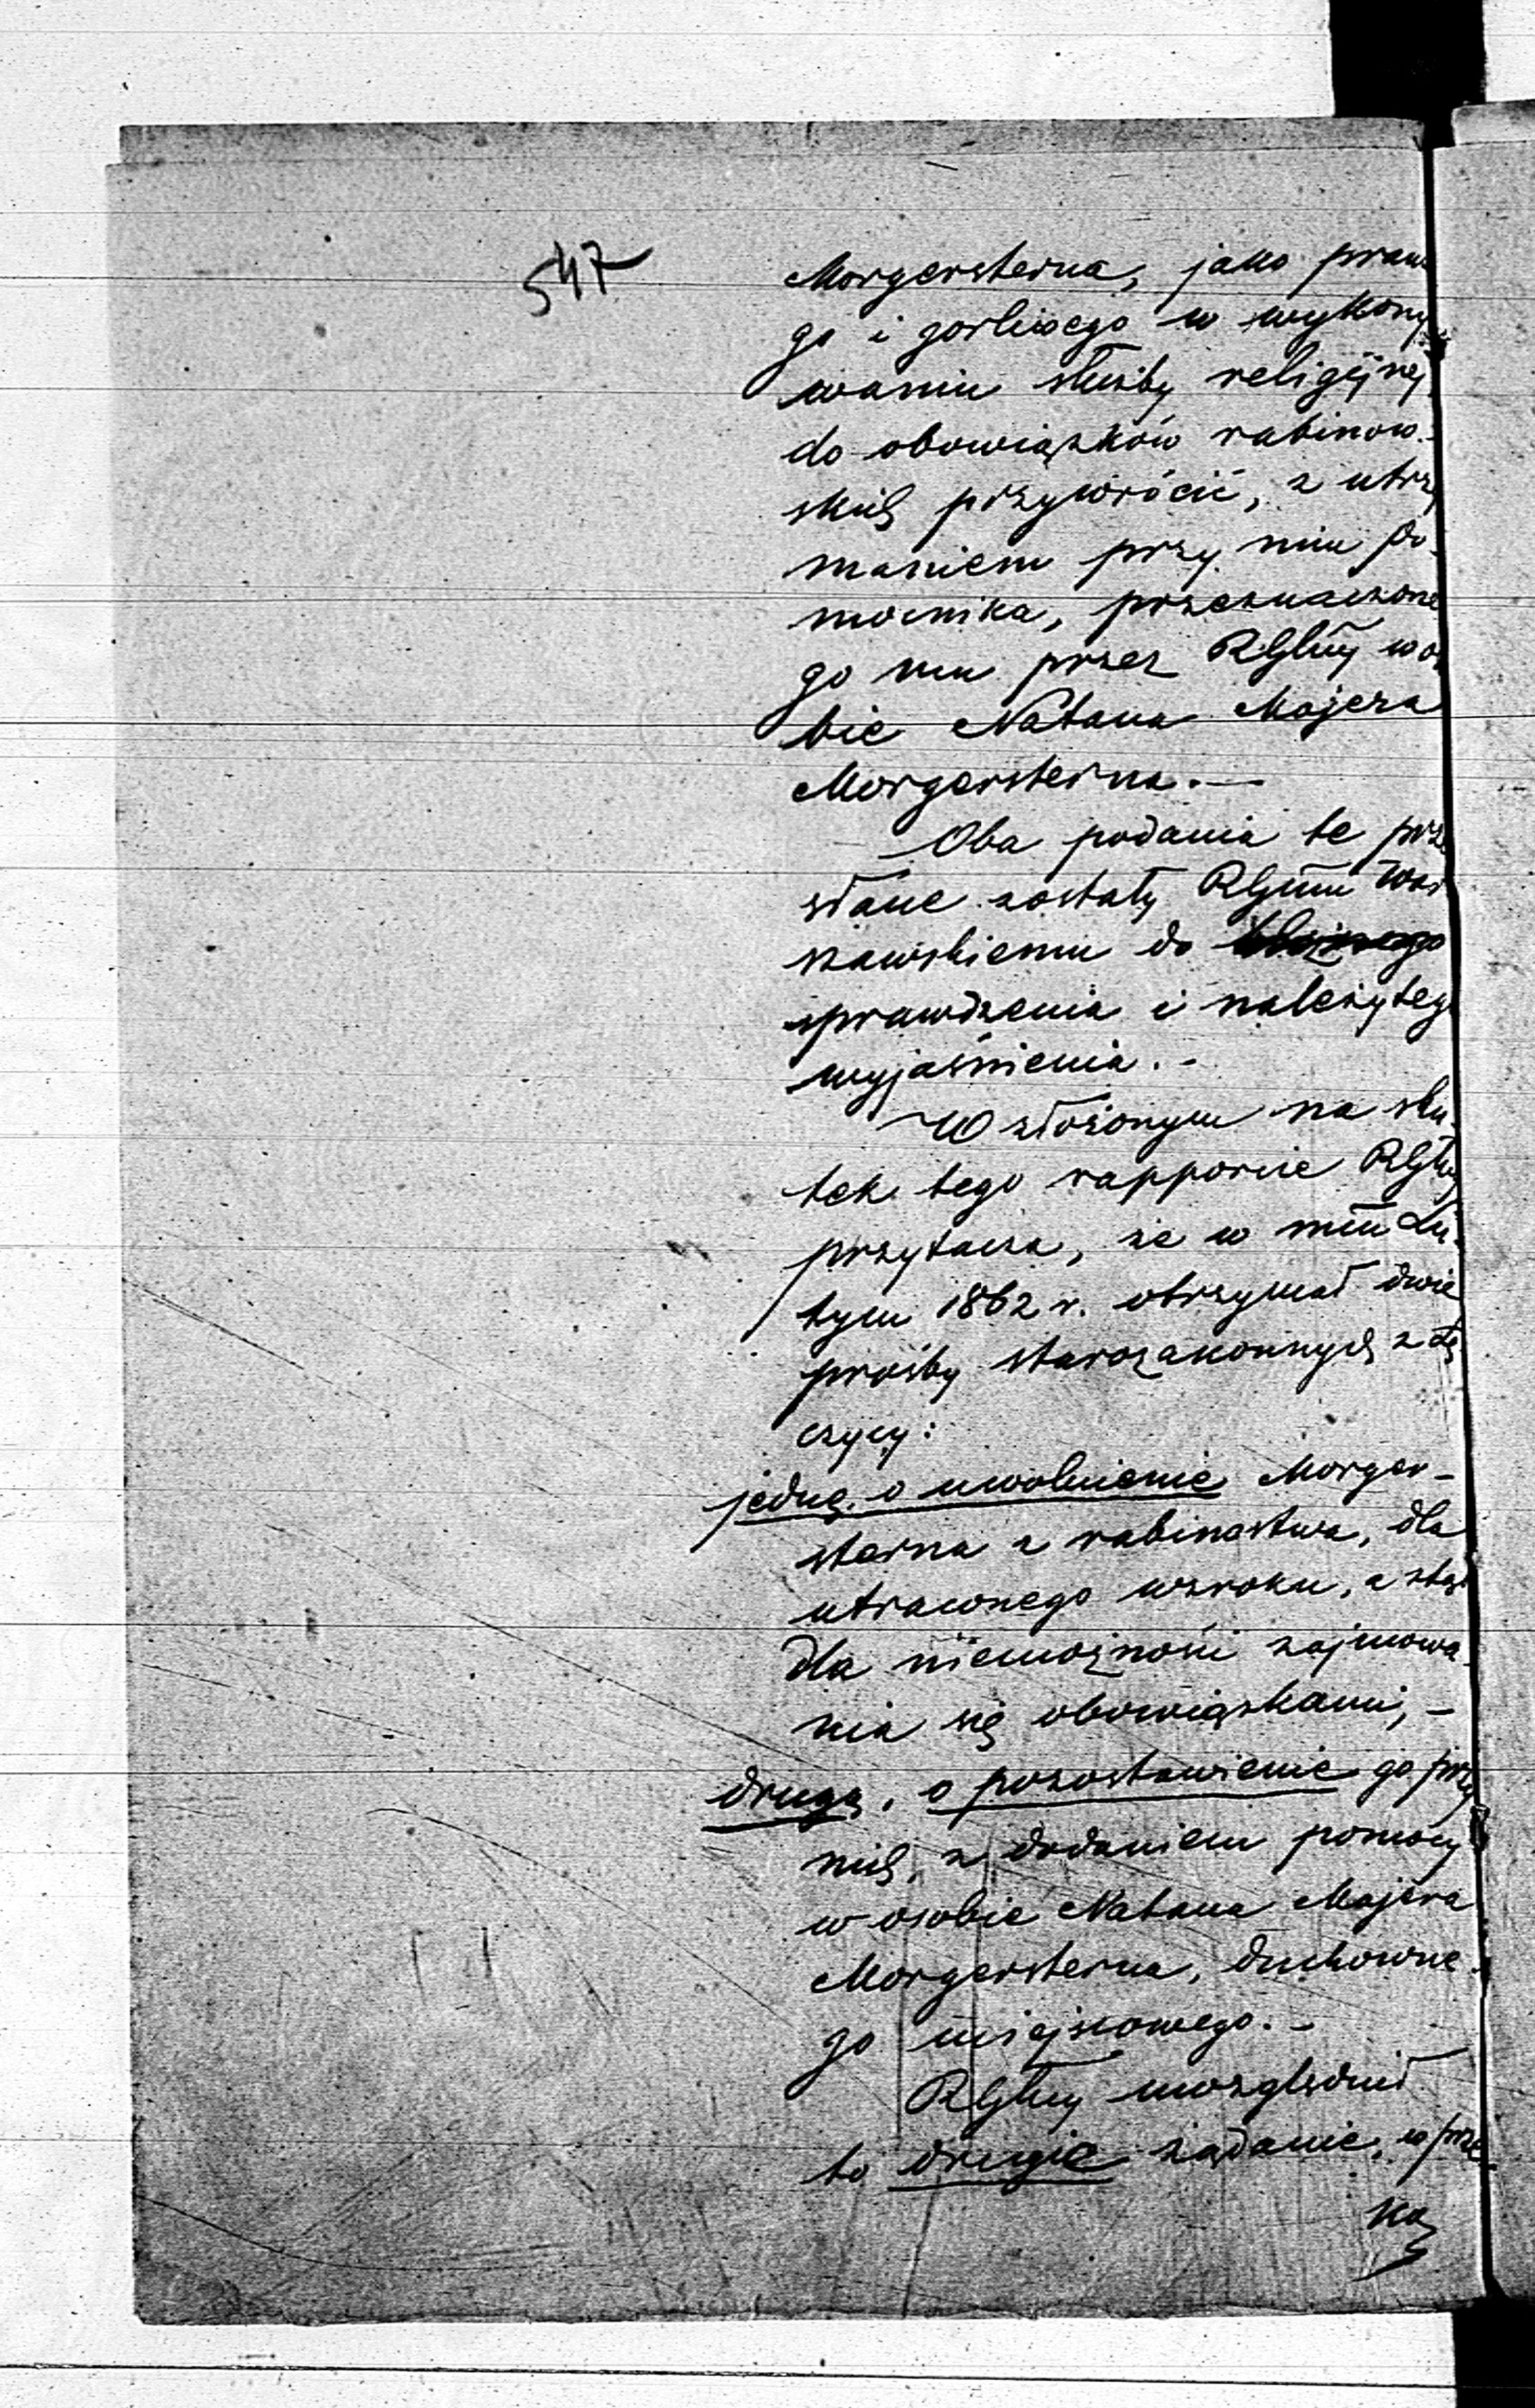 547
Morgersterna, jako praw
go i gorliwego w wykony
waniu służby religijnej,
do obowiązków rabinow-
skich przywrócić, z utrzy
maniem przy nim po-
mocnika, przeznaczone
go mu przez RGlny w o
bie Natana Majera
Morgersterna. —
Oba podania te prze
słane zostały RGlmu War
szawskiemu do
sprawdzenia i należytego
wyjaśnienia. -
W złożonym na sku-
tek tego rapporcie RGlny
przytacza, że w mcu Lu-
tym 1862 r. otrzymał dwie
prośby starozakonnych z Łę
czycy:
jedną o uwolnienie Morger-
sterna z rabinostwa, dla
utraconego wzroku, a stąd
dla niemożności zajmowa-
nia się obowiązkami, -
drugą, o pozostawienie go przy
nich, z dodaniem pomocy
w osobie Natana Majera
Morgersterna, duchowne-
go miejscowego. -
RGlny uwzględnił
to drugie żądanie, w prze
ko